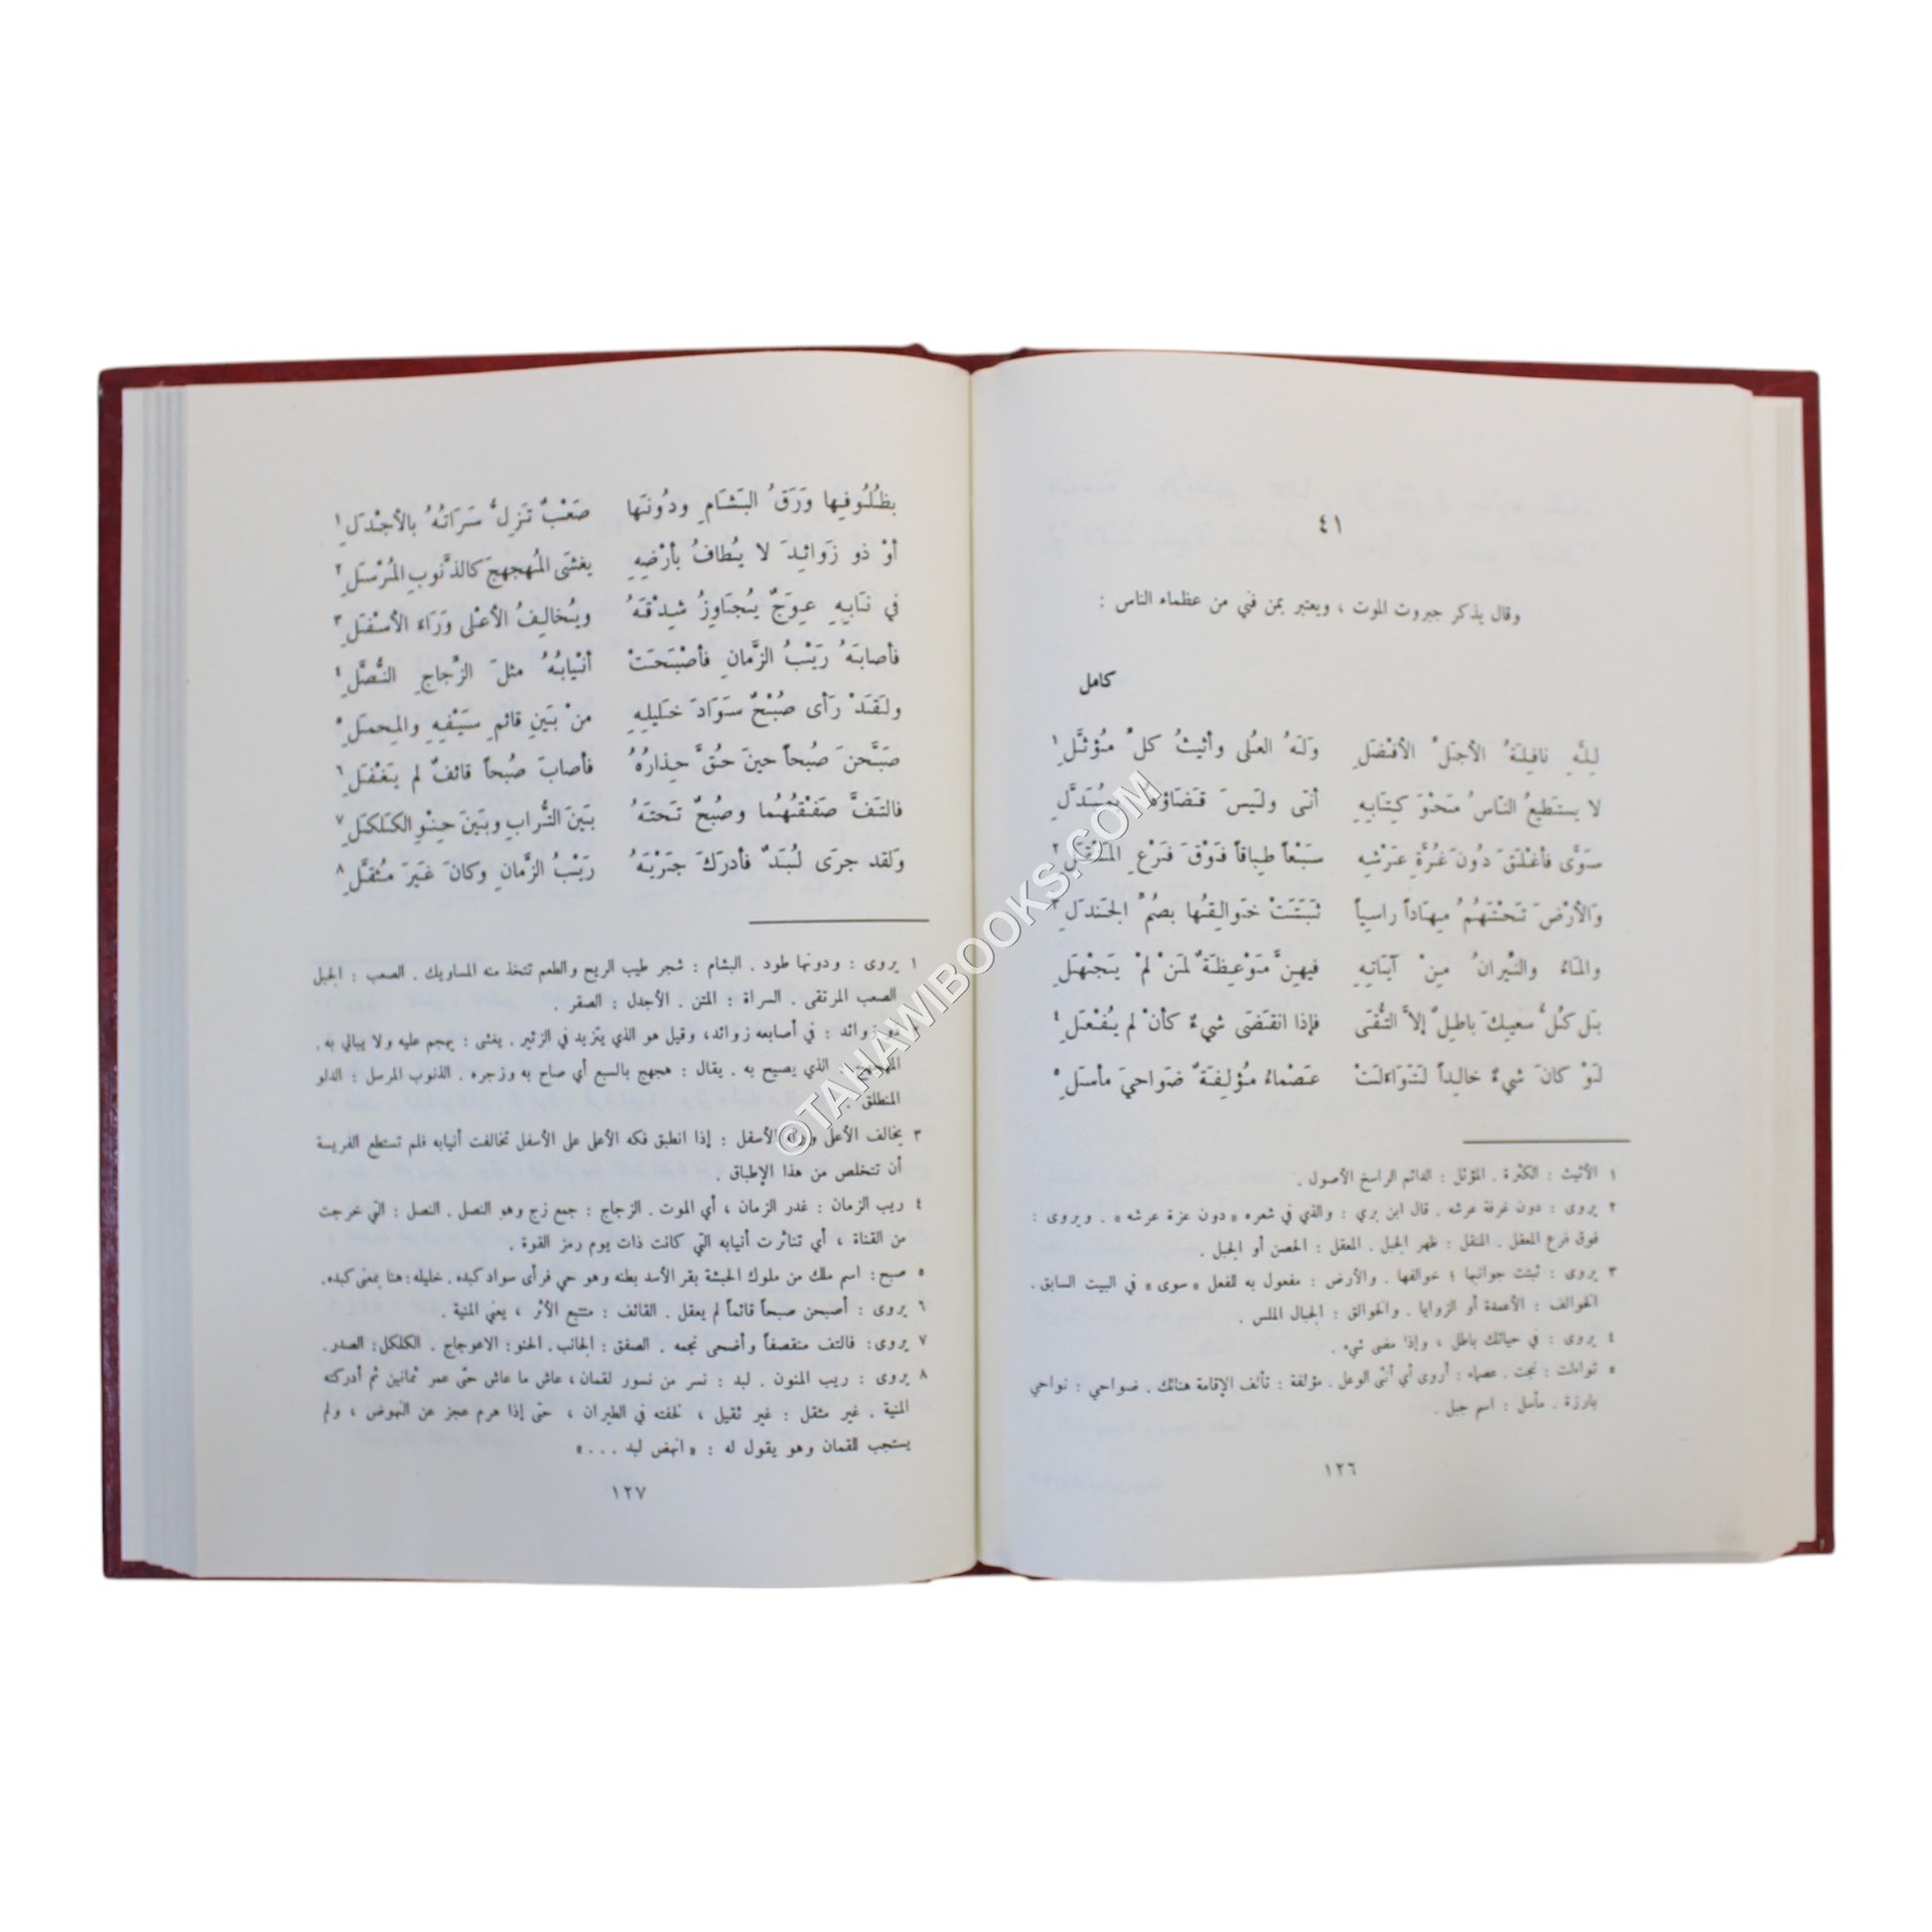 ٤١
وقال يذكر جبروت الموت ، ويعتبر بمن فني من عظماء الناس :
كامل
لِلهِ نافِلَةُ الأجَلِّ الأفْضَلِ وَلَهُ العُلى وأثيثُ كلِّ مُؤثَّلِ١
لا يستَطيعُ النّاسُ مَحْوَ كِتابِهِ أنّى ولَيسَ قَضَاؤُهُ بمُبَدَّلِ
سَوّى فأغْلَقَ دُونَ غُرَّةِ عَرْشِهِ سَبْعاً طِباقاً فَوْقَ فَرْعِ المَنْقَلِ٢
وَالأرْضَ تَحْتَهُمُ مِهَاداً راسِياً ثَبَتَتْ خَوالِقُها بصُمِّ الجَندَلِ٣
والمَاءُ والنّيرانُ مِنْ آيَاتِهِ فيهِنَّ مَوْعِظَةٌ لمَنْ لمْ يَجْهَلِ
بَل كُلُّ سعيِكَ باطِلٌ إلاَّ التُّقَى فإذا انقَضَى شيءٌ كأنْ لم يُفْعَلِ٤
لَوْ كانَ شيءٌ خالِداً لَتَوَاءَلَتْ عَصْماءُ مُؤلِفَةٌ ضَواحيَ مأسَلِ٥
١ الأثيث : الكثرة . المؤثل : الدائم الراسخ الأصول .
٢ يروى : دون غرفة عرشه . قال ابن بري : والذي في شعره «دون عزة عرشه» . ويروى :
فوق فرع المعقل . المنقل : ظهر الجبل . المعقل : الحصن أو الجبل .
٣ يروى : ثبتت جوانبها ؛ خوالفها . والأرض : مفعول به للفعل «سوى» في البيت السابق .
الخوالف : الأعمدة أو الزوايا . والخوالق : الجبال الملس .
٤ يروى : في حياتك باطل ، وإذا مضى شيء .
٥ تواءلت : نجت . عصماء : أروى أي أنثى الوعل . مؤلفة : تألف الإقامة هنالك . ضواحي : نواحي
بارزة . مأسل : اسم جبل .
١٢٦
بظُلُوفِها وَرَقُ البَشَامِ ودُونَها صَعْبٌ تَزِلُّ سَرَاتُهُ بالأجْدَلِ١
أوْ ذو زَوائِدَ لا يُطافُ بأرْضِهِ يغشَى المُهجهِجَ كالذَّنوبِ المُرْسَلِ٢
في نَابِهِ عِوَجٌ يُجَاوِزُ شِدْقَهُ ويُخالِفُ الأعْلى وَرَاءَ الأسْفَلِ٣
فأصابَهُ رَيْبُ الزَّمانِ فأصْبَحَتْ أنْيابُهُ مثلَ الزِّجاجِ النُّصَّلِ٤
ولَقَدْ رَأى صُبْحٌ سَوَادَ خَليلِهِ منْ بَينِ قائمِ سَيْفِهِ والمِحمَلِ٥
صَبَّحنَ صُبحاً حينَ حُقَّ حِذارُهُ فأصابَ صُبحاً قائفٌ لم يَغْفَلِ٦
فالتَفَّ صَفْقُهُما وصُبحٌ تَحتَهُ بَينَ التُّرابِ وبَينَ حِنْوِ الكَلكَلِ٧
وَلقد جرَى لُبَدٌ فأدرَكَ جَرْيَهُ رَيْبُ الزَّمانِ وكانَ غَيرَ مُثقَّلِ٨
١ يروى : ودونها طود . البشام : شجر طيب الريح والطعم تتخذ منه المساويك . الصعب : الجبل
الصعب المرتقى . السراة : المتن . الأجدل : الصقر .
ذو زوائد : في أصابعه زوائد، وقيل هو الذي يتزيد في الزئير . يغشى : يهجم عليه ولا يبالي به .
المهجهج : الذي يصيح به . يقال : هجهج بالسبع أي صاح به وزجره . الذنوب المرسل : الدلو
المنطلق .
٣ يخالف الأعلى وراء الأسفل : إذا انطبق فكه الأعلى على الأسفل تخالفت أنيابه فلم تستطع الفريسة
أن تتخلص من هذا الإطباق .
٤ ريب الزمان : غدر الزمان ، أي الموت . الزجاج : جمع زج وهو النصل . النصل : التي خرجت
من القناة ، أي تناثرت أنيابه التي كانت ذات يوم رمز القوة .
٥ صبح : اسم ملك من ملوك الحبشة بقر الأسد بطنه وهو حي فرأى سواد كبده . خليله : هنا بمعنى كبده .
٦ يروى : أصبحن صبحاً قائماً لم يعقل . القائف : متتبع الأثر ، يعني المنية .
٧ يروى : فالتف منقصفاً وأضحى نجمه . الصفق : الجانب . الحنو : الاعوجاج . الكلكل : الصدر .
٨ يروى : ريب المنون . لبد : نسر من نسور لقمان ، عاش ما عاش حتى عمر ثمانين ثم أدركته
المنية . غير مثقل : غير ثقيل ، لخفته في الطيران ، حتى إذا هرم عجز عن النهوض ، ولم
يستجب للقمان وهو يقول له : «انهض لبد ...»
١٢٧
©TAHAWIBOOKS.COM